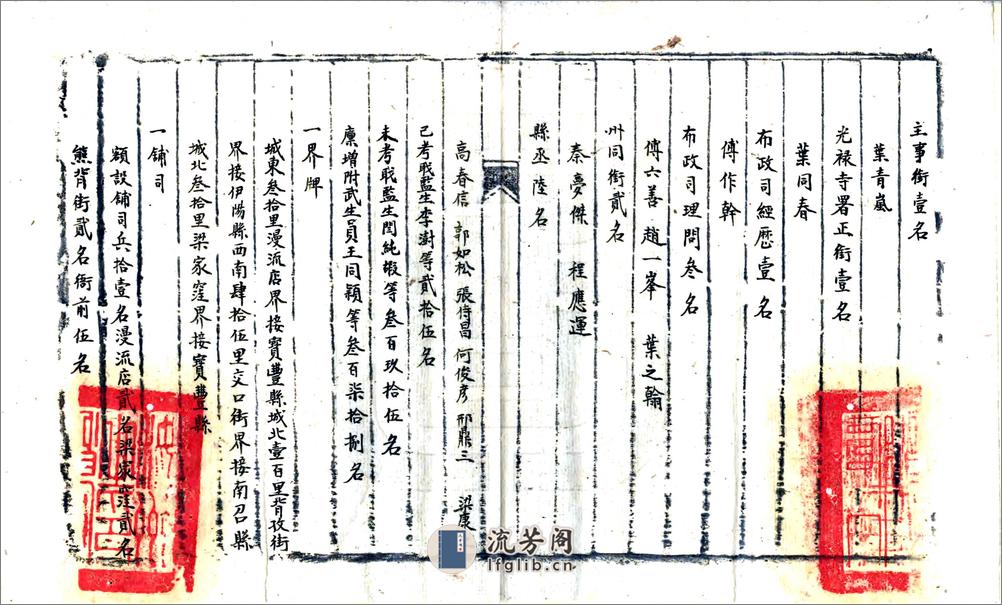 主事銜壹名
葉青嵐
光禄寺署正銜壹名
葉同春
布政司經歷壹名
傅作幹
布政司理問叁名
傅六善 趙一峯 葉之翰
州同銜貳名
秦夢傑 程應運
縣丞陸名
高春信 郭如松 張侍昌 何俊彦 邢鼎三 梁康
已考職監生李澍等貳拾伍名
未考職監生閆純嘏等叁百玖拾伍名
廪增附武生員王同穎等叁百柒拾捌名
一界牌
城東叁拾里漫流店界接寳豐縣城北壹百里背孜街
界接伊陽縣西南肆拾伍里交口街界接南召縣
城北叁拾里梁家窪界接寳豐縣
一鋪司
額設鋪司兵拾壹名漫流店貳名梁家窪貳名
熊背街貳名衙前伍名
流芳阁
lfglib.cn